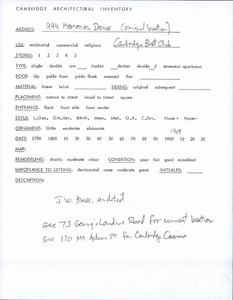 CAMBRIDGE ARCHITECTURAL INVENTORY
ADDRESS: 994 Memorial Drive (original location)
USE: residential commercial religious Cambridge Boat Club
STORIES: 1 2 3 4 5
TYPE: single double row duplex decker double-d tenement apartment
ROOF: hip gable front gable flank mansard flat
MATERIAL: frame brick SIDING: original subsequent
PLACEMENT: narrow to street broad to street square
ENTRANCE: flank front side front center
ORNAMENT: little moderate elaborate 1909
MAP:
REMODELING: drastic moderate minor CONDITION: poor fair good excellent
IMPORTANCE TO SETTING: detrimental none moderate great INITIALED:
DESCRIPTION:
J.W. architect
see 73 Gerry's Landing Road for current location
see 170 Mt. Auburn St for Cambridge Casino